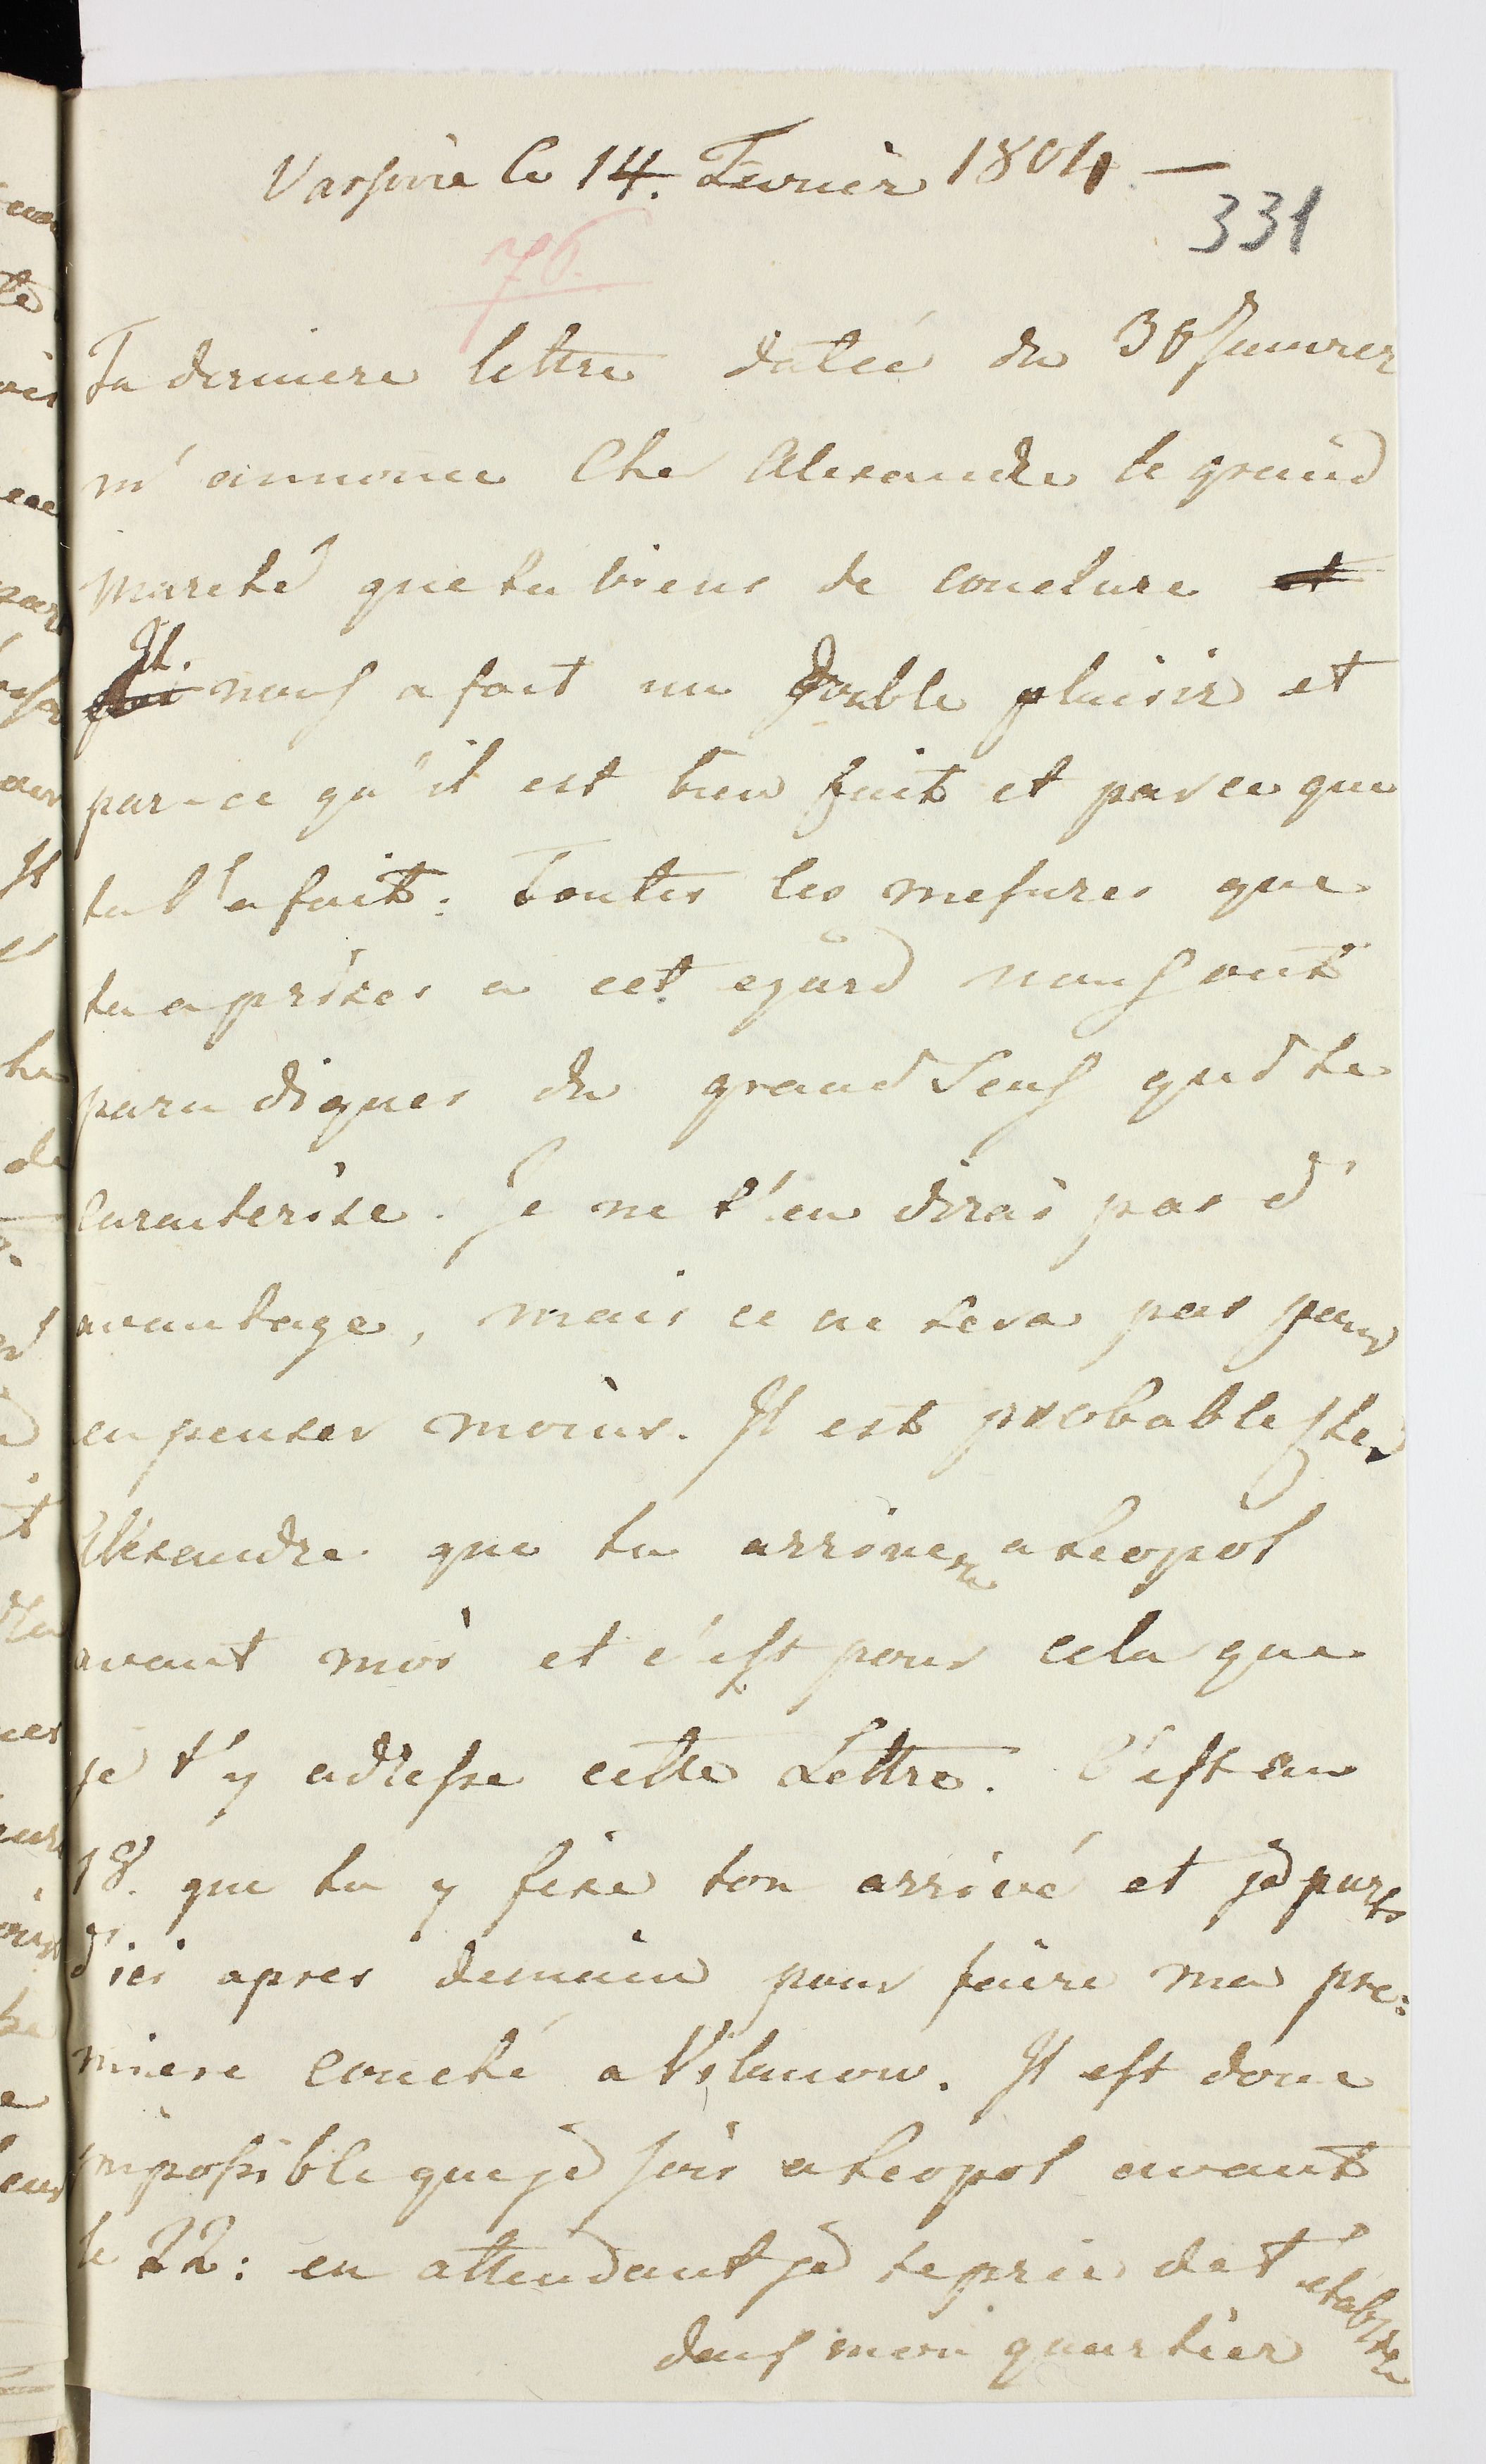 Varsovie le 14. Fevrier 1804 —
331
76.
Ta derniere lettre datée du 30 Janvier
m'annonce Cher Alexandre le grand
marché que tu viens de conclure et
Il. nous a fait un double plaisir et
par-ce qu'il est bien fait et parceque
tu l'a fait. Toutes les mesures que
tu a prises a cet egard nous ont
paru dignes du grand Sens qui te
caracterise. Je ne t'en dirai pas d'
avantage, mais ce ne sera pas pour
en penser moins. Il est probable cher
Alexandre que tu arrivera a Leopol
avant moi et c'est pour cela que
je t'y adresse cette Lettre. C'est au
18. que tu y fixe ton arrivé et je parts
d'ici apres demain pour faire ma pre:
miere couché a Vilanow. Il est donc
impossible que je sois a Leopol avant
le 22: en attendant je te prie de t'établir
dans mon quartier